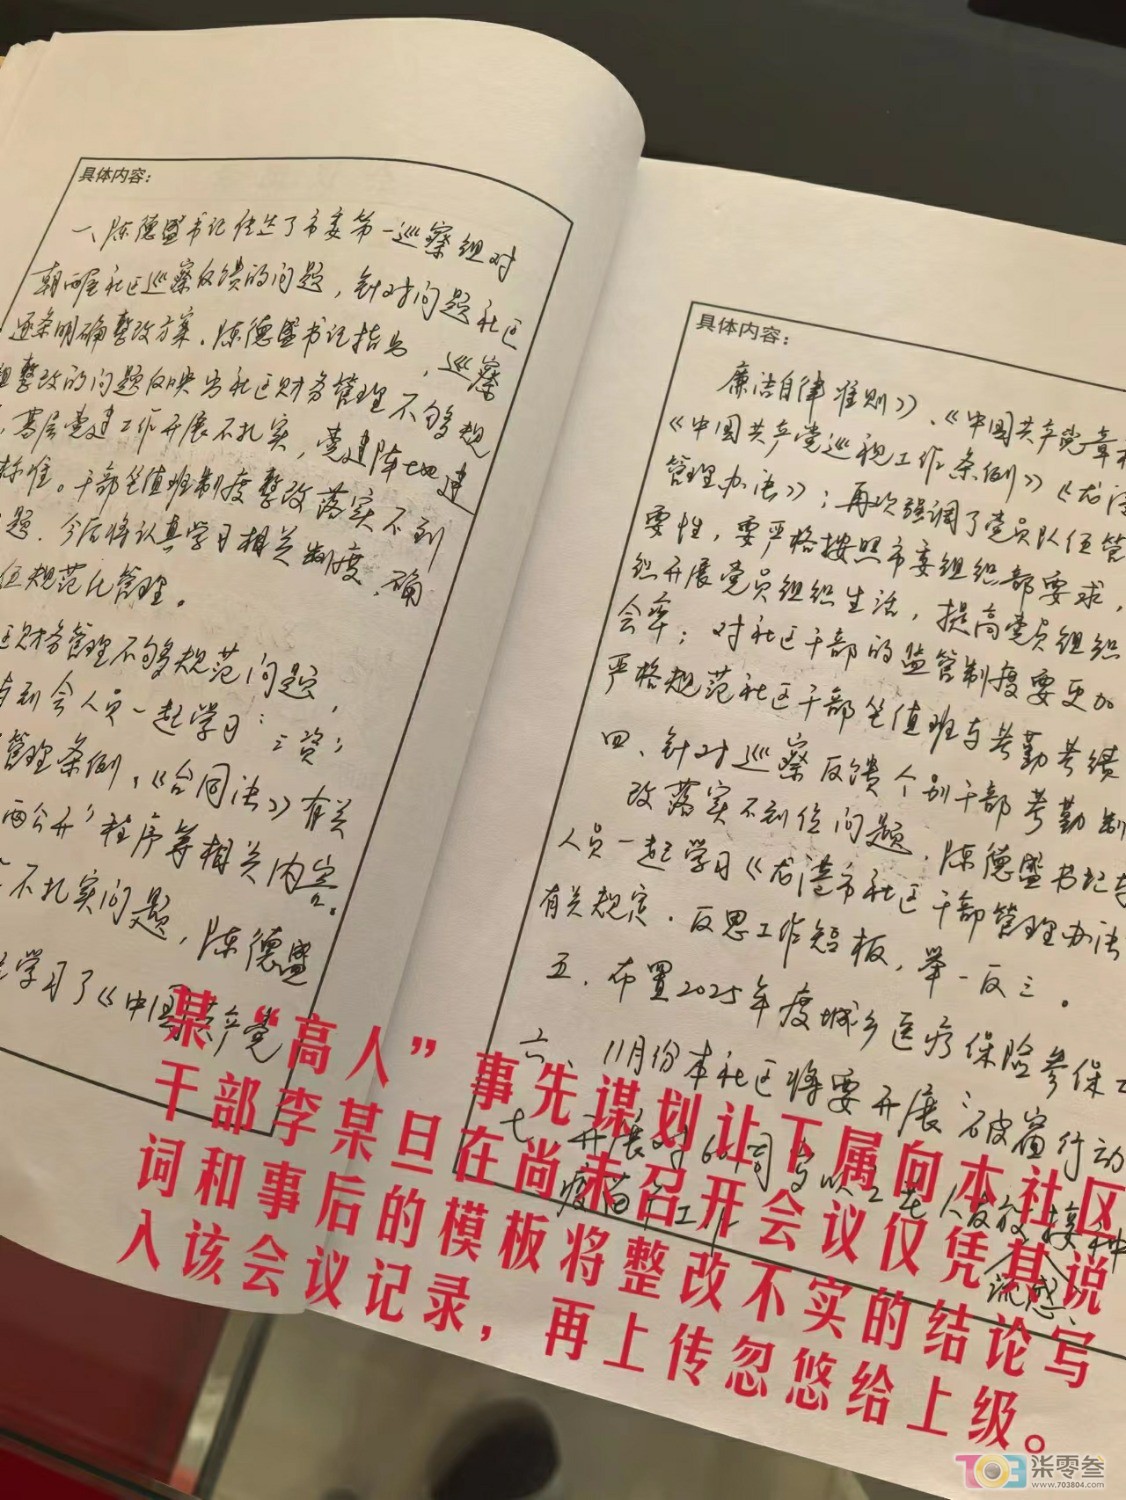 具体内容：
一、陈德盛书记传达了市委第一巡察组对
朝晖社区巡察反馈的问题，针对问题社区
逐条明确整改方案。陈德盛书记指出，巡察
整改的问题反映出社区财务管理不够规
基层党建工作开展不扎实，党建阵地建
标准。干部坐值班制度整改落实不到
题。今后将认真学习相关制度，确
规范化管理。
财务管理不够规范问题，
到会人员一起学习：三资；
管理条例，《合同法》有关
两公开”程序等相关内容。
不扎实问题，陈德盛
学习了《中国共产党
具体内容：
廉洁自律准则》、《中国共产党章
《中国共产党巡视工作条例》《龙港
管理办法》；再次强调了党员队伍管
要性，要严格按照市委组织部要求，
织开展党员组织生活，提高党员组织
会率；对社区干部的监管制度要更加
严格规范社区干部坐值班与考勤考绩
四、针对巡察反馈个别干部考勤制
改落实不到位问题，陈德盛书记与
人员一起学习《龙港市社区干部管理办法
有关规定，反思工作短板，举一反三。
五、布置2025年度城乡医疗保险参保工
六、11月份本社区将要开展：破窗行动
七、开展对60周岁以上老人放接种
流感
疫苗工作
某“高人”事先谋划让下属向本社区
干部李某旦在尚未召开会议仅凭其说
词和事后的模板将整改不实的结论写
入该会议记录，再上传忽悠给上级。
703 柒零叁
www.703804.com